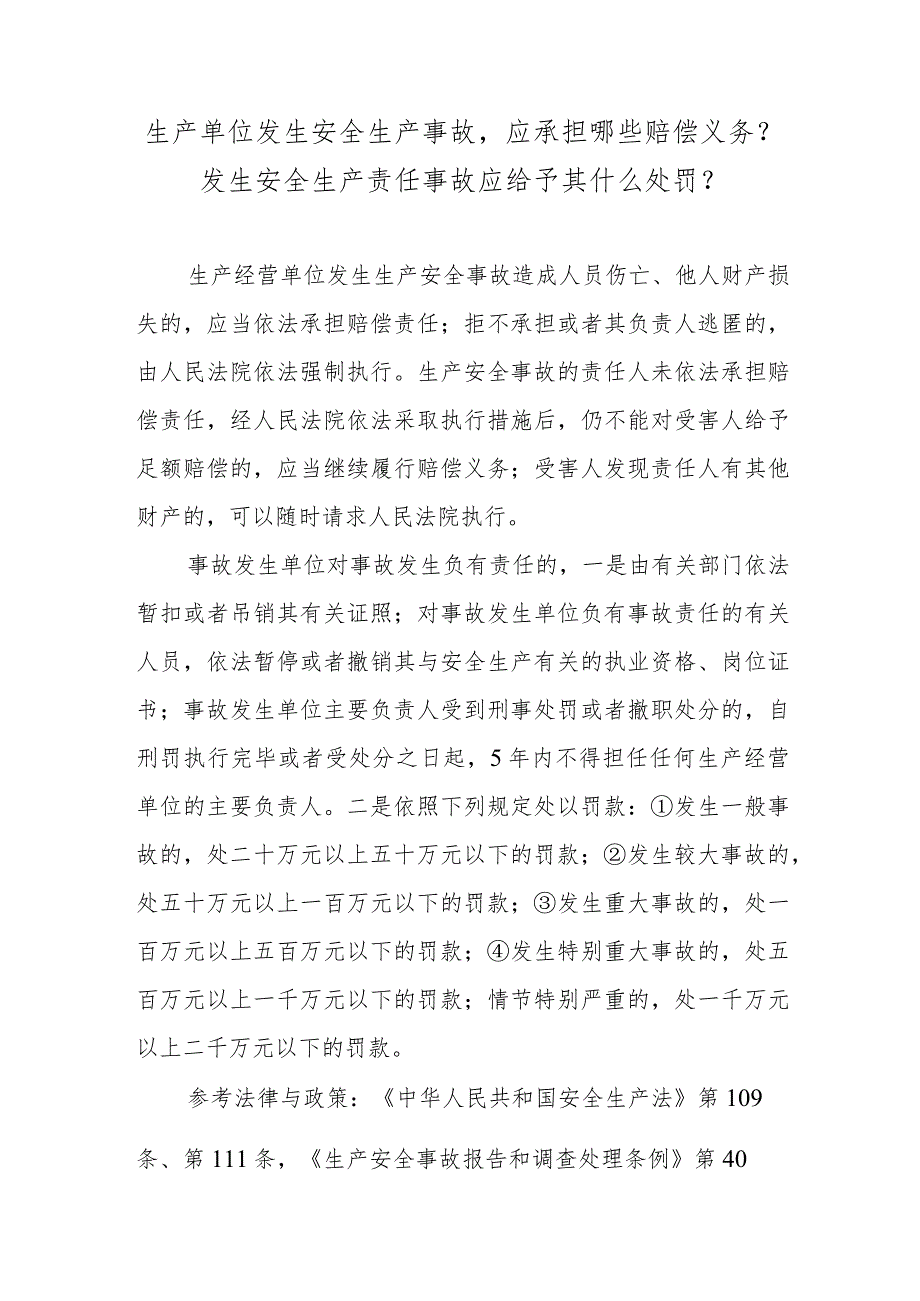 生产单位发生安全生产事故，应承担哪些赔偿义务？
发生安全生产责任事故应给予其什么处罚？
生产经营单位发生生产安全事故造成人员伤亡、他人财产损
失的，应当依法承担赔偿责任；拒不承担或者其负责人逃匿的，
由人民法院依法强制执行。生产安全事故的责任人未依法承担赔
偿责任，经人民法院依法采取执行措施后，仍不能对受害人给予
足额赔偿的，应当继续履行赔偿义务；受害人发现责任人有其他
财产的，可以随时请求人民法院执行。
事故发生单位对事故发生负有责任的，一是由有关部门依法
暂扣或者吊销其有关证照；对事故发生单位负有事故责任的有关
人员，依法暂停或者撤销其与安全生产有关的执业资格、岗位证
书；事故发生单位主要负责人受到刑事处罚或者撤职处分的，自
刑罚执行完毕或者受处分之日起，5 年内不得担任任何生产经营
单位的主要负责人。二是依照下列规定处以罚款：①发生一般事
故的，处二十万元以上五十万元以下的罚款；②发生较大事故的，
处五十万元以上一百万元以下的罚款；③发生重大事故的，处一
百万元以上五百万元以下的罚款；④发生特别重大事故的，处五
百万元以上一千万元以下的罚款；情节特别严重的，处一千万元
以上二千万元以下的罚款。
参考法律与政策：《中华人民共和国安全生产法》第 109
条、第 111 条，《生产安全事故报告和调查处理条例》第 40